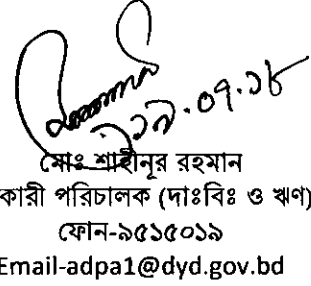 ২৯.০৭.১৮
মোঃ শাহীনূর রহমান
কারী পরিচালক (দাঃবিঃ ও ঋণ)
ফোন-৯৫১৫০১৯
Email-adpa1@dyd.gov.bd